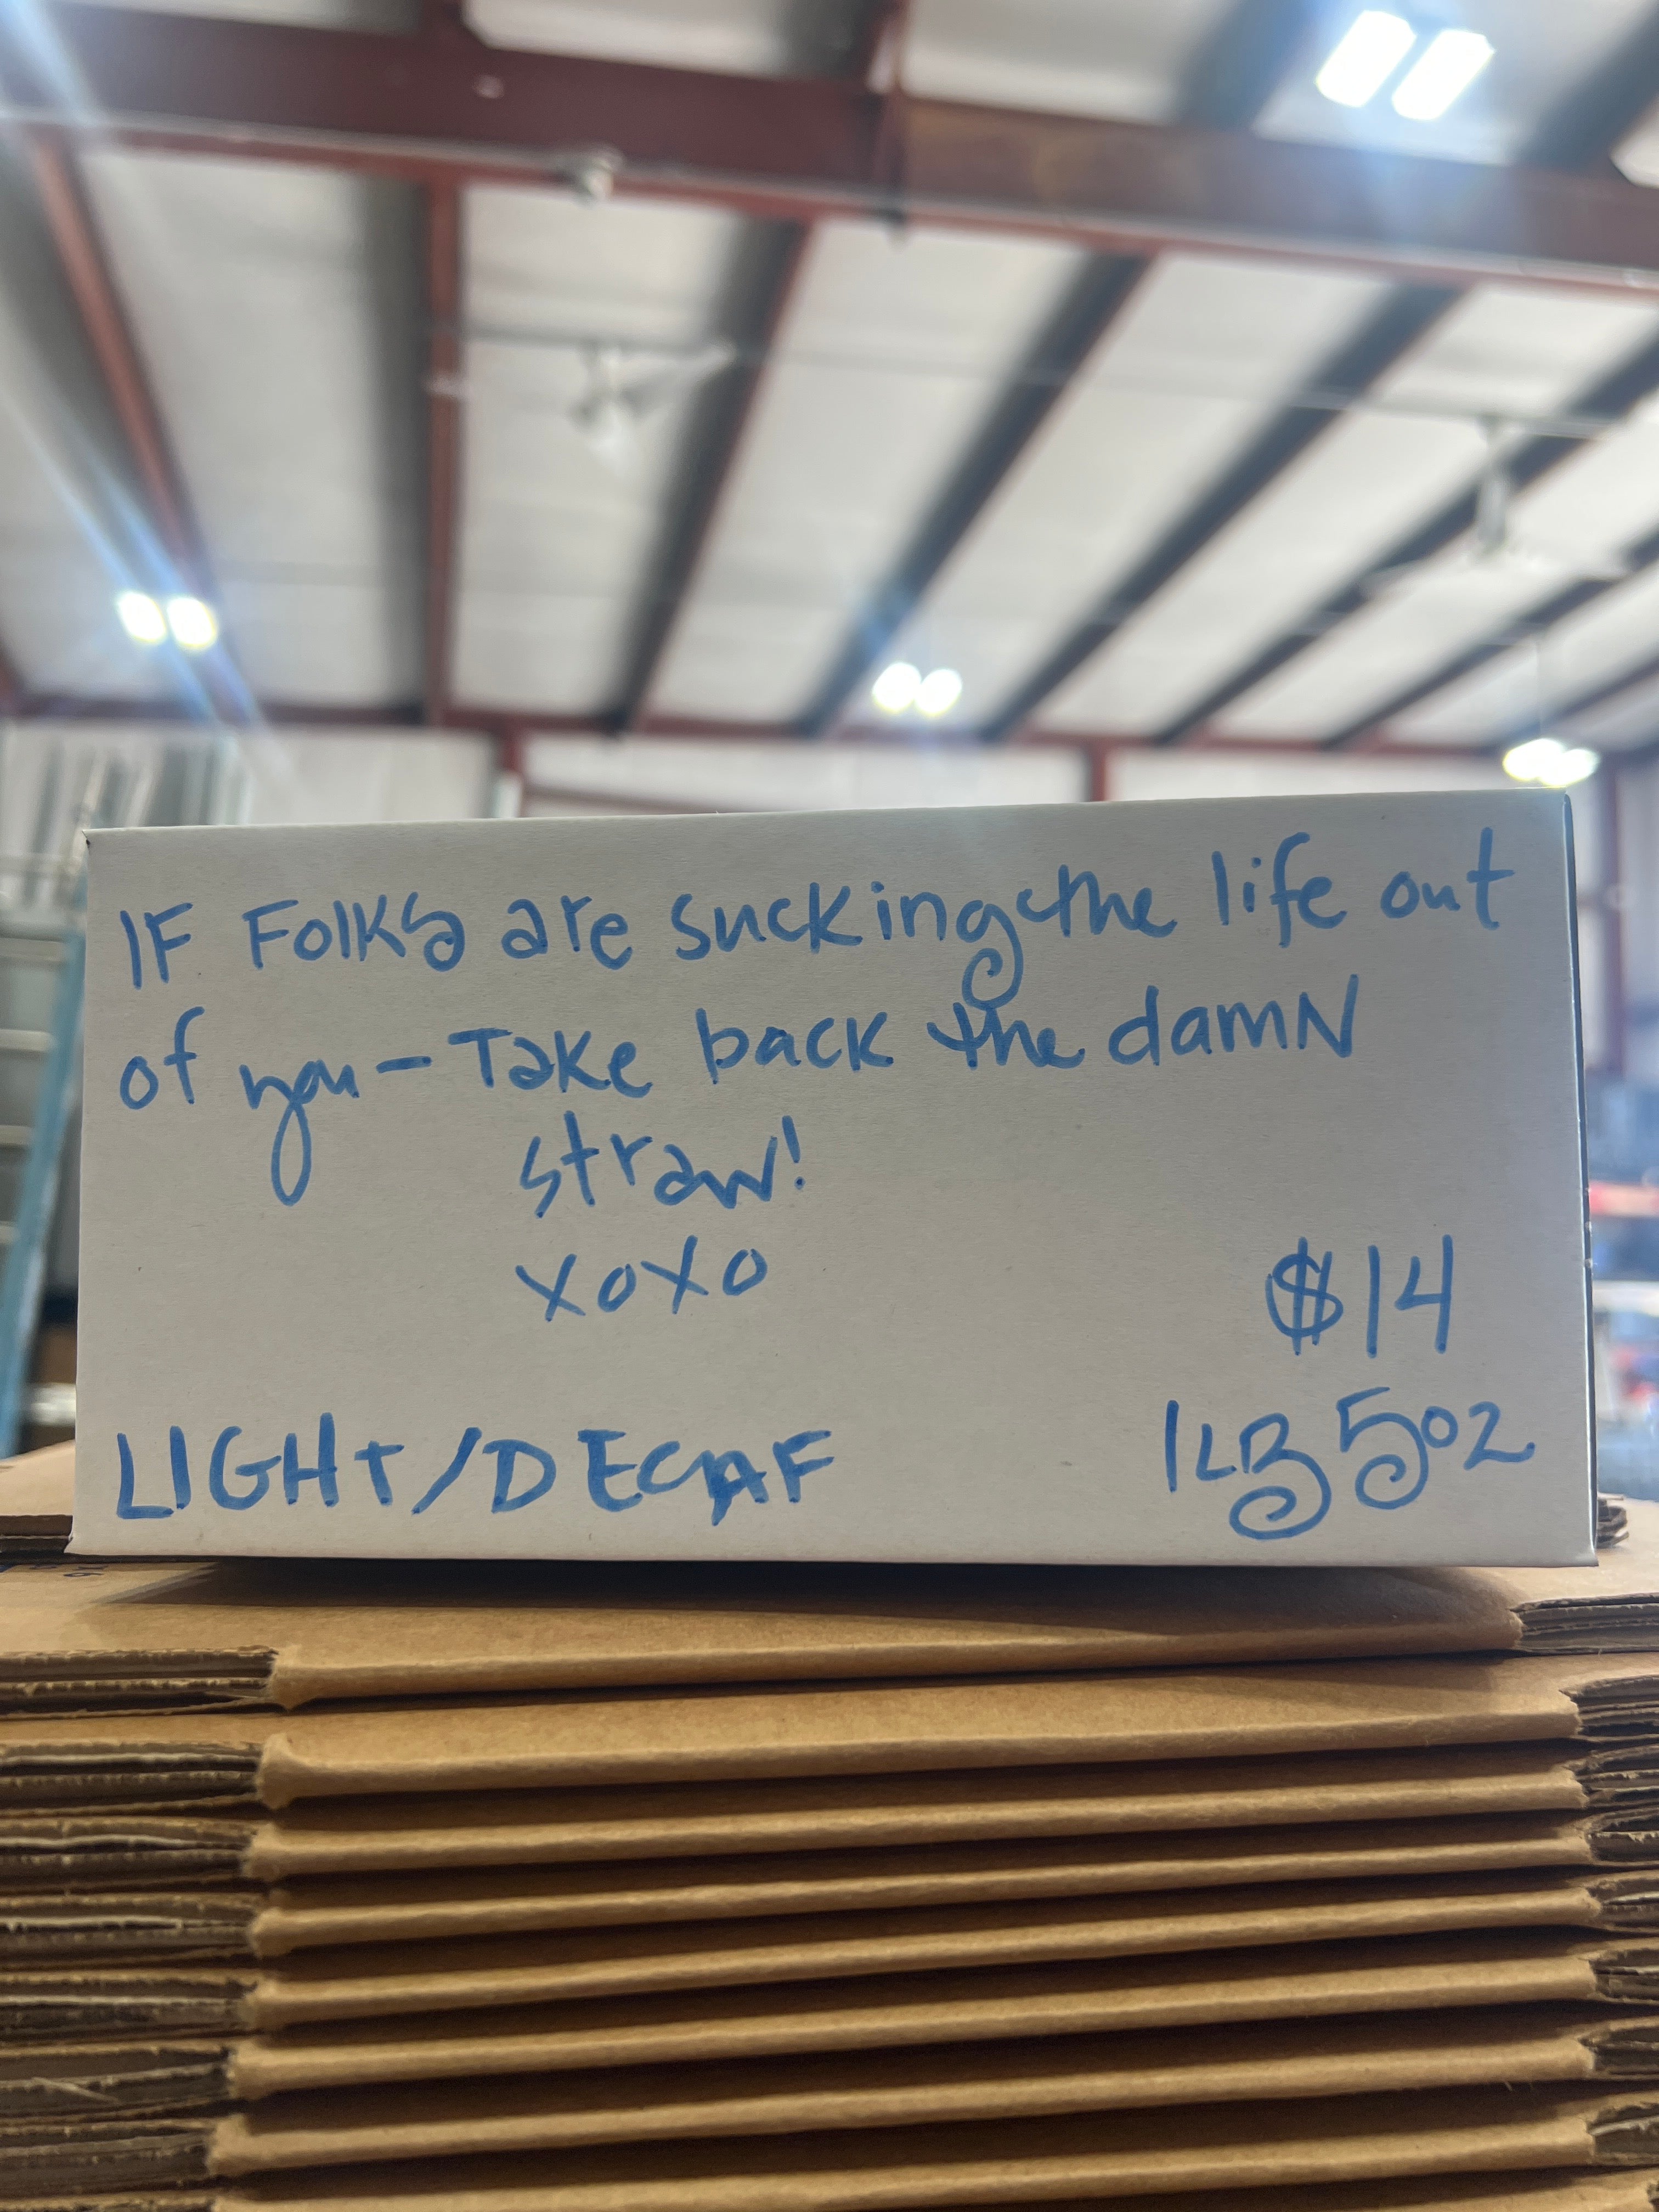 IF Folks are sucking the life out
of you - Take back the damN
straw!
xoxo
$14
LIGHT/DECAF
1LB 5oz